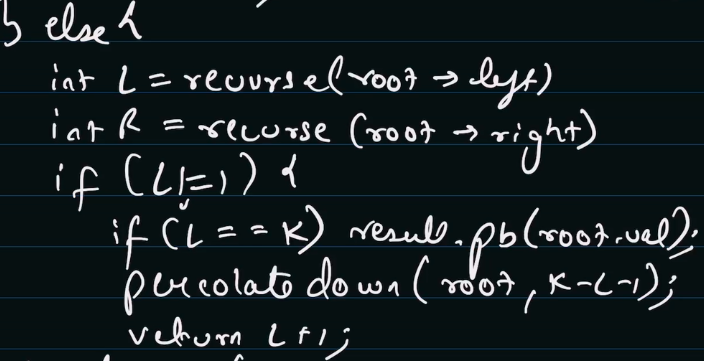 } else {
int L = recurse(root → left)
int R = recurse (root → right)
if (L!=1) {
if (L == K) result.pb(root.val);
percolate down (root, K-L-1);
return L+1;